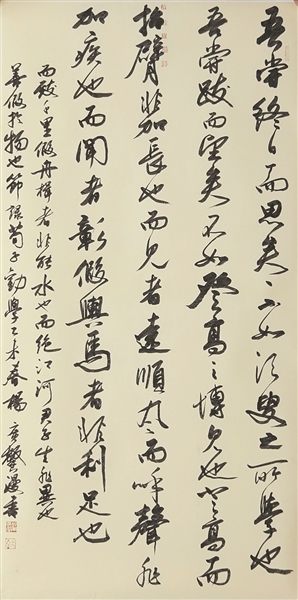 吾嘗終日而思矣不如须臾之所學也
吾嘗跂而望矣不如登高之博見也登高而
招臂非加長也而見者遠順風而呼聲非
加疾也而聞者彰假輿馬者非利足也
而致千里假舟楫者非能水也而绝江河君子生非異也
善假於物也節録荀子勸學乙未春楊書